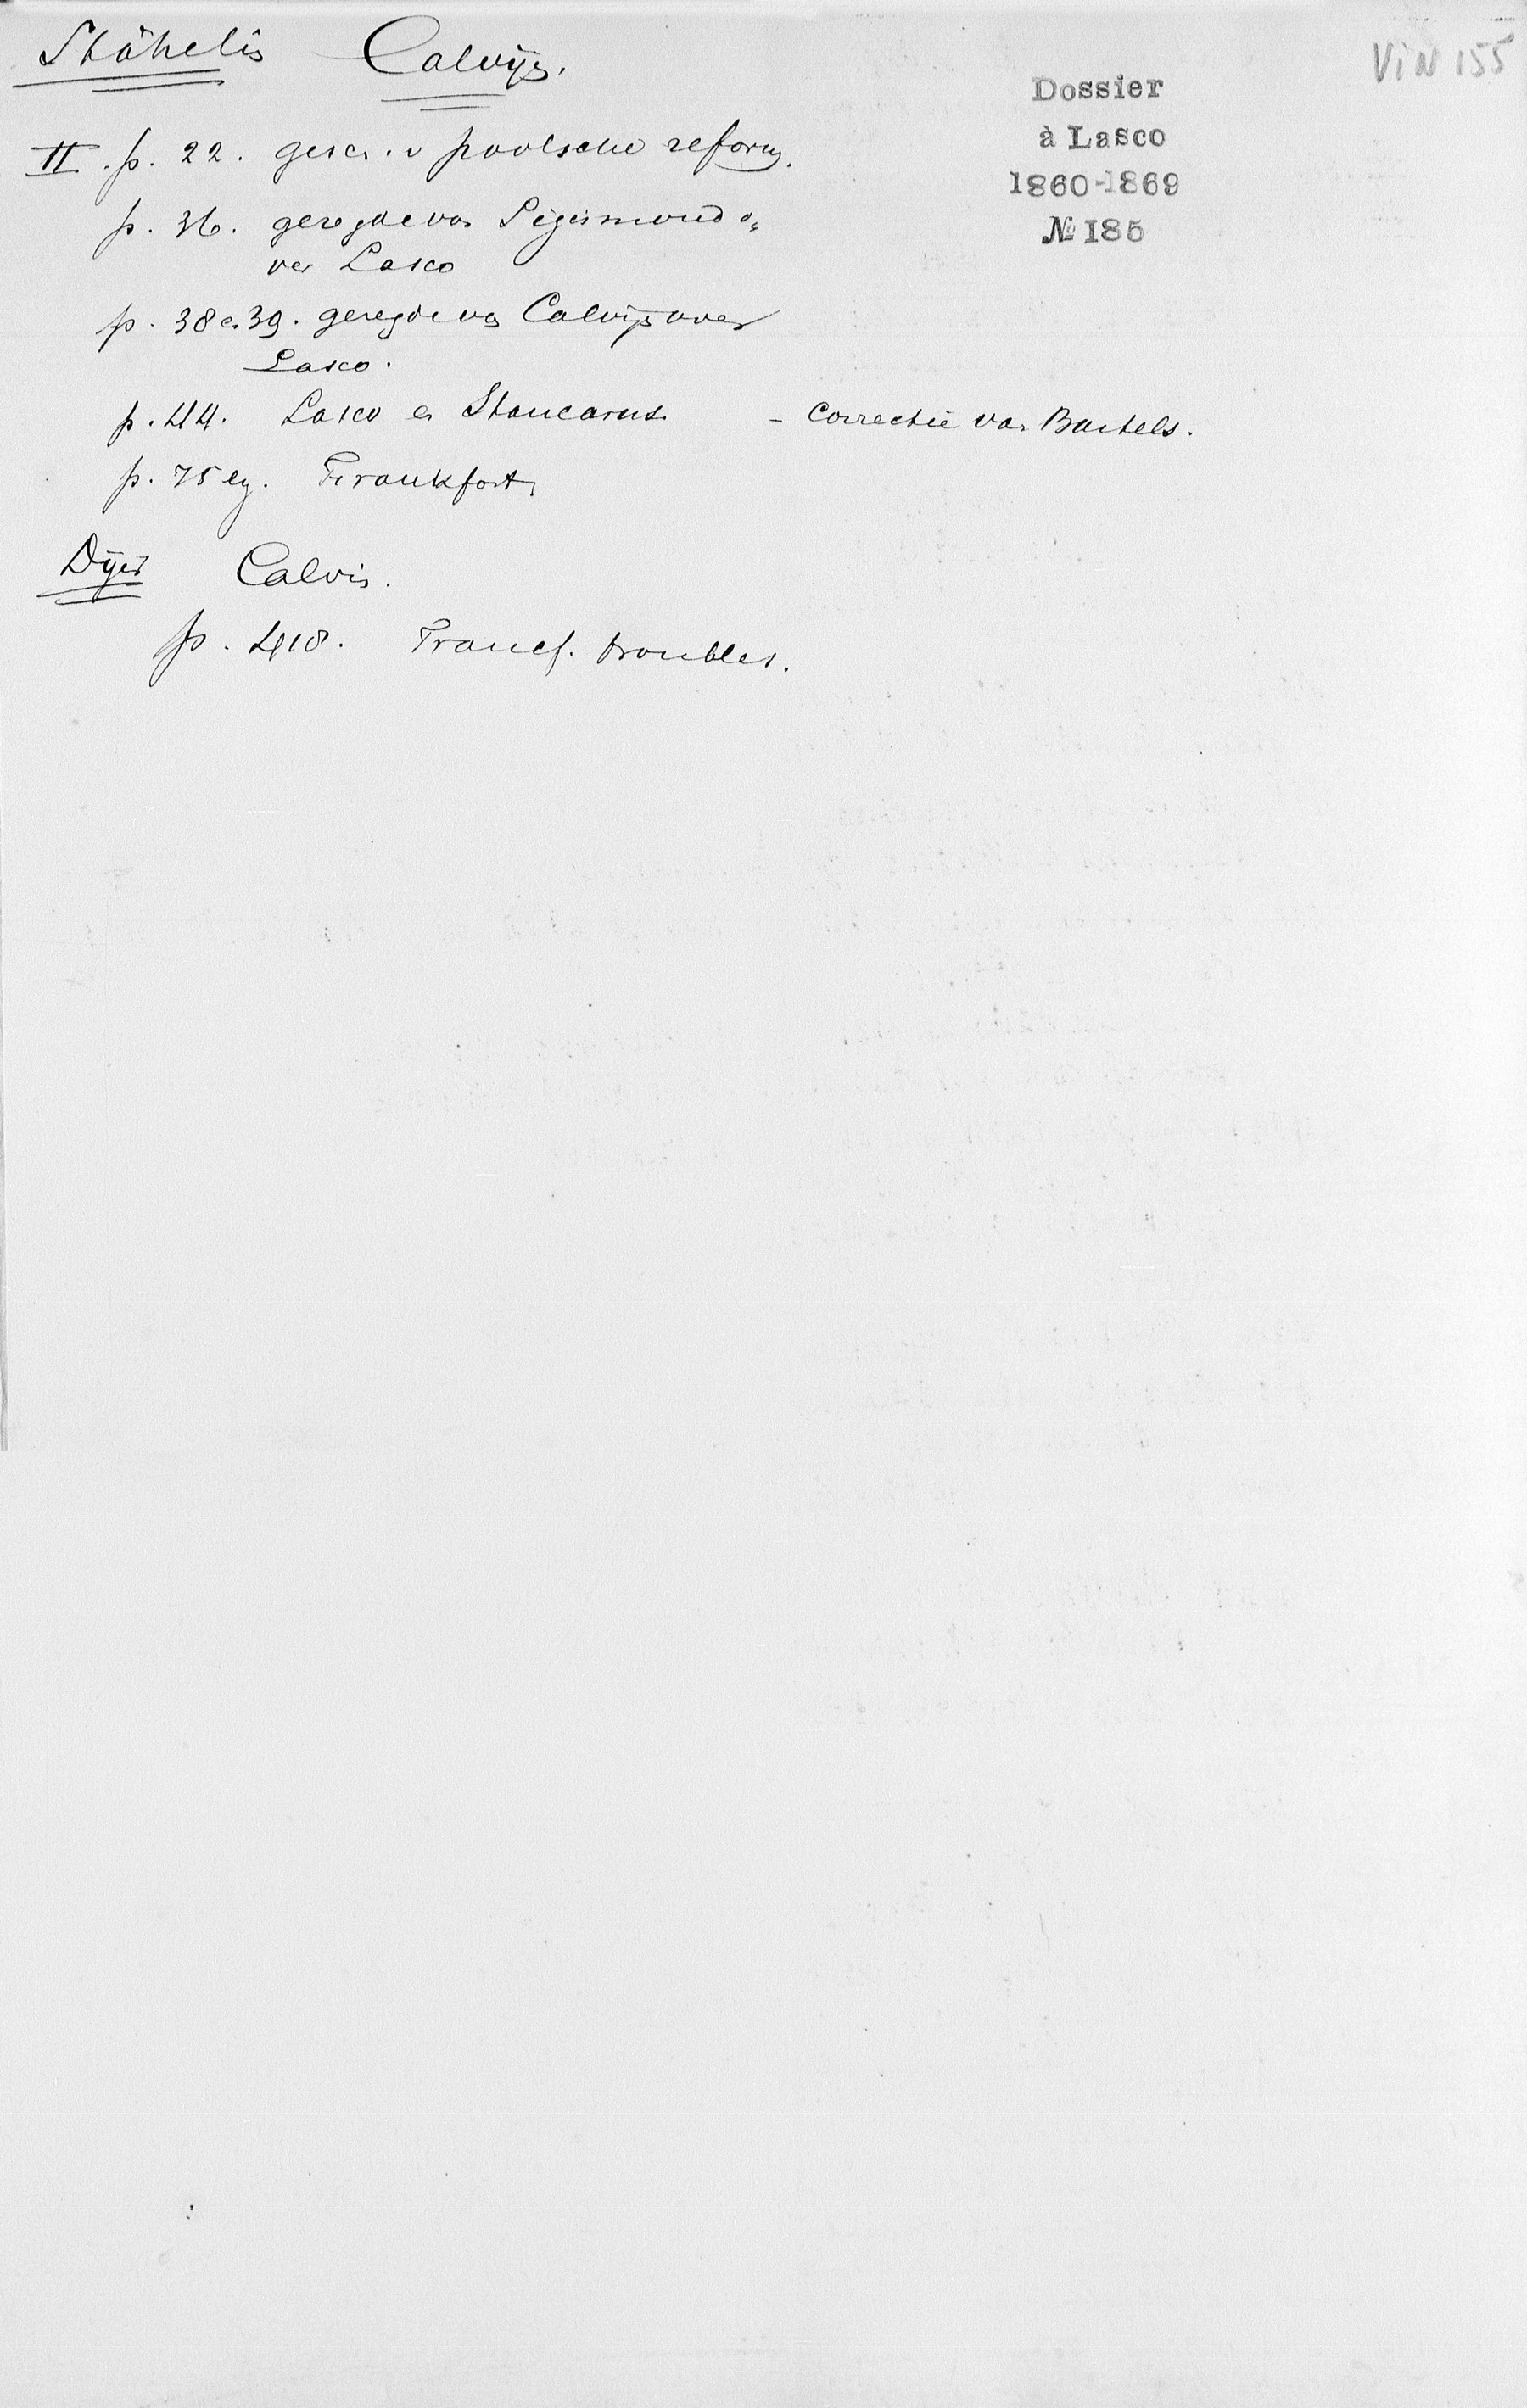 Stähelin Calvijn.
II. p. 22. gesch. v poolsche reform.
p. 36. getuigde van Sigismond o„
ver Lasco
p. 38 en 39. van Calvijn over
Lasco.
p. 44. Lasco en Stancarus - Correctie van Bartels.
p. 75 Frankfort
Dyer Calvin.
p. 418. Francf. troubles.
ViN 155
Dossier
à Lasco
1860-1869
№ 185